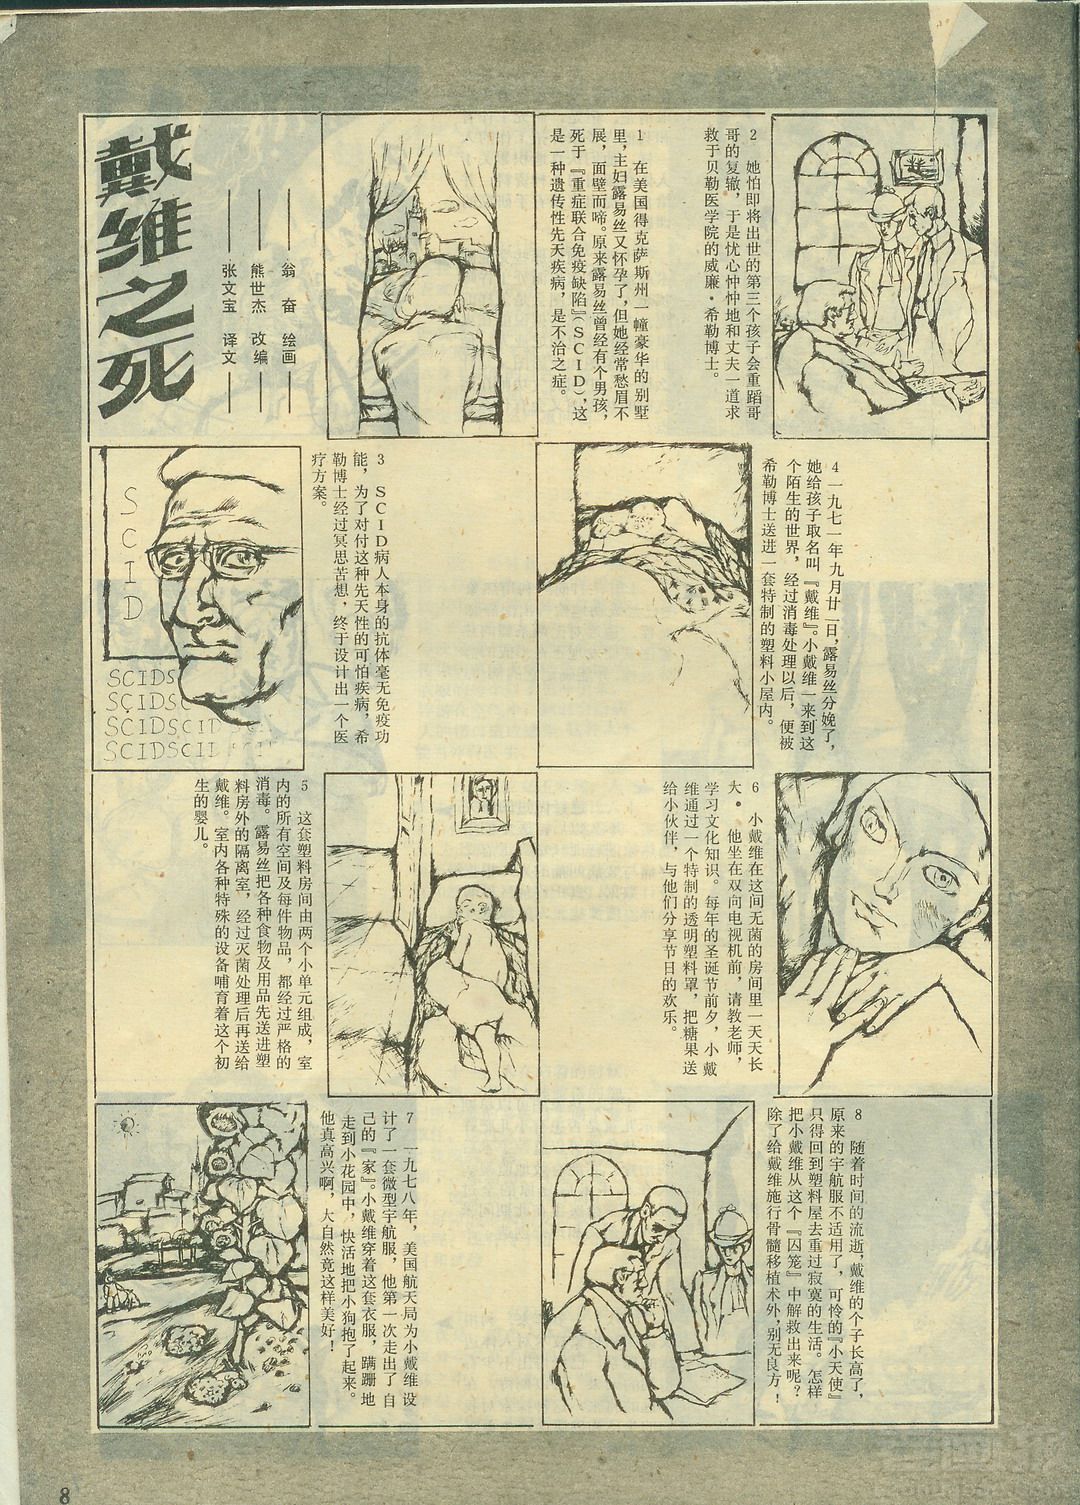 戴维之死
翁 奋 绘画
熊世杰 改编
张文宝 译文
1 在美国得克萨斯州一幢豪华的别墅
里,主妇露易丝又怀孕了,但她经常愁眉不
展,面壁而啼。原来露易丝曾经有个男孩,
死于『重症联合免疫缺陷』(SCID),这
是一种遗传性先天疾病,是不治之症。
2 她怕即将出世的第三个孩子会重蹈哥
哥的复辙,于是忧心忡忡地和丈夫一道求
救于贝勒医学院的威廉·希勒博士。
SCID
SCIDS
SCIDSC
SCIDSCID SCI
SCIDSCID
3 SCID病人本身的抗体毫无免疫功
能,为了对付这种先天性的可怕疾病,希
勒博士经过冥思苦想,终于设计出一个医
疗方案。
4 一九七一年九月廿一日,露易丝分娩了,
她给孩子取名叫『戴维』。小戴维一来到这
个陌生的世界,经过消毒处理以后,便被
希勒博士送进一套特制的塑料小屋内。
5 这套塑料房间由两个小单元组成,室
内的所有空间及每件物品,都经过严格的
消毒。露易丝把各种食物及用品先送进塑
料房外的隔离室,经过灭菌处理后再送给
戴维。室内各种特殊的设备哺育着这个初
生的婴儿。
6 小戴维在这间无菌的房间里一天天长
大·他坐在双向电视机前,请教老师,
学习文化知识。每年的圣诞节前夕,小戴
维通过一个特制的透明塑料罩,把糖果送
给小伙伴,与他们分享节日的欢乐。
7 一九七八年,美国航天局为小戴维设
计了一套微型宇航服,他第一次走出了自
己的『家』。小戴维穿着这套衣服,蹒跚地
走到小花园中,快活地把小狗抱了起来。
他真高兴啊,大自然竟这样美好!
8 随着时间的流逝,戴维的个子长高了,
原来的宇航服不适用了,可怜的『小天使』
只得回到塑料屋去重过寂寞的生活。怎样
把小戴维从这个『囚笼』中解救出来呢?
除了给戴维施行骨髓移植术外,别无良方!
8